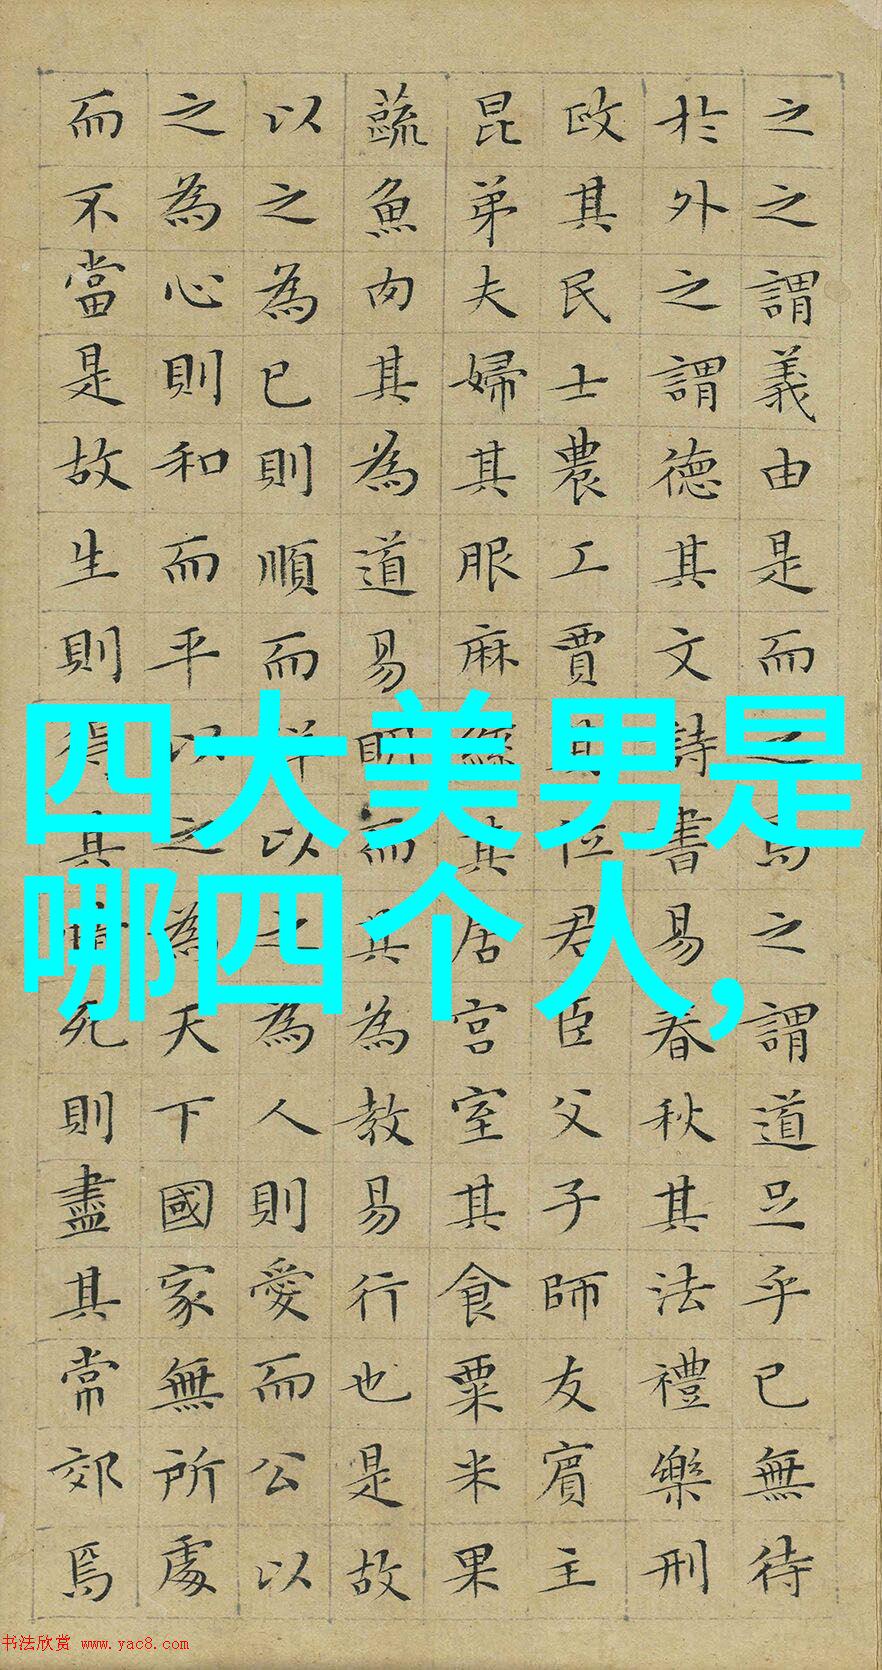 之之謂義由是而之焉之謂道足乎已無待
於外之謂德其文詩書易春秋其法禮樂刑
政其民士農工賈其位君臣父子師友賔主
昆弟夫婦其服麻絲其居宮室其食粟米果
蔬魚肉其為道易明而其為教易行也是故
以之為己則順而祥以之為人則愛而公以
之為心則和而平以之為天下國家無所處
而不當是故生則得其情死則盡其常郊焉
四大美男是
哪四个人,
书法欣赏 www.yac8.com